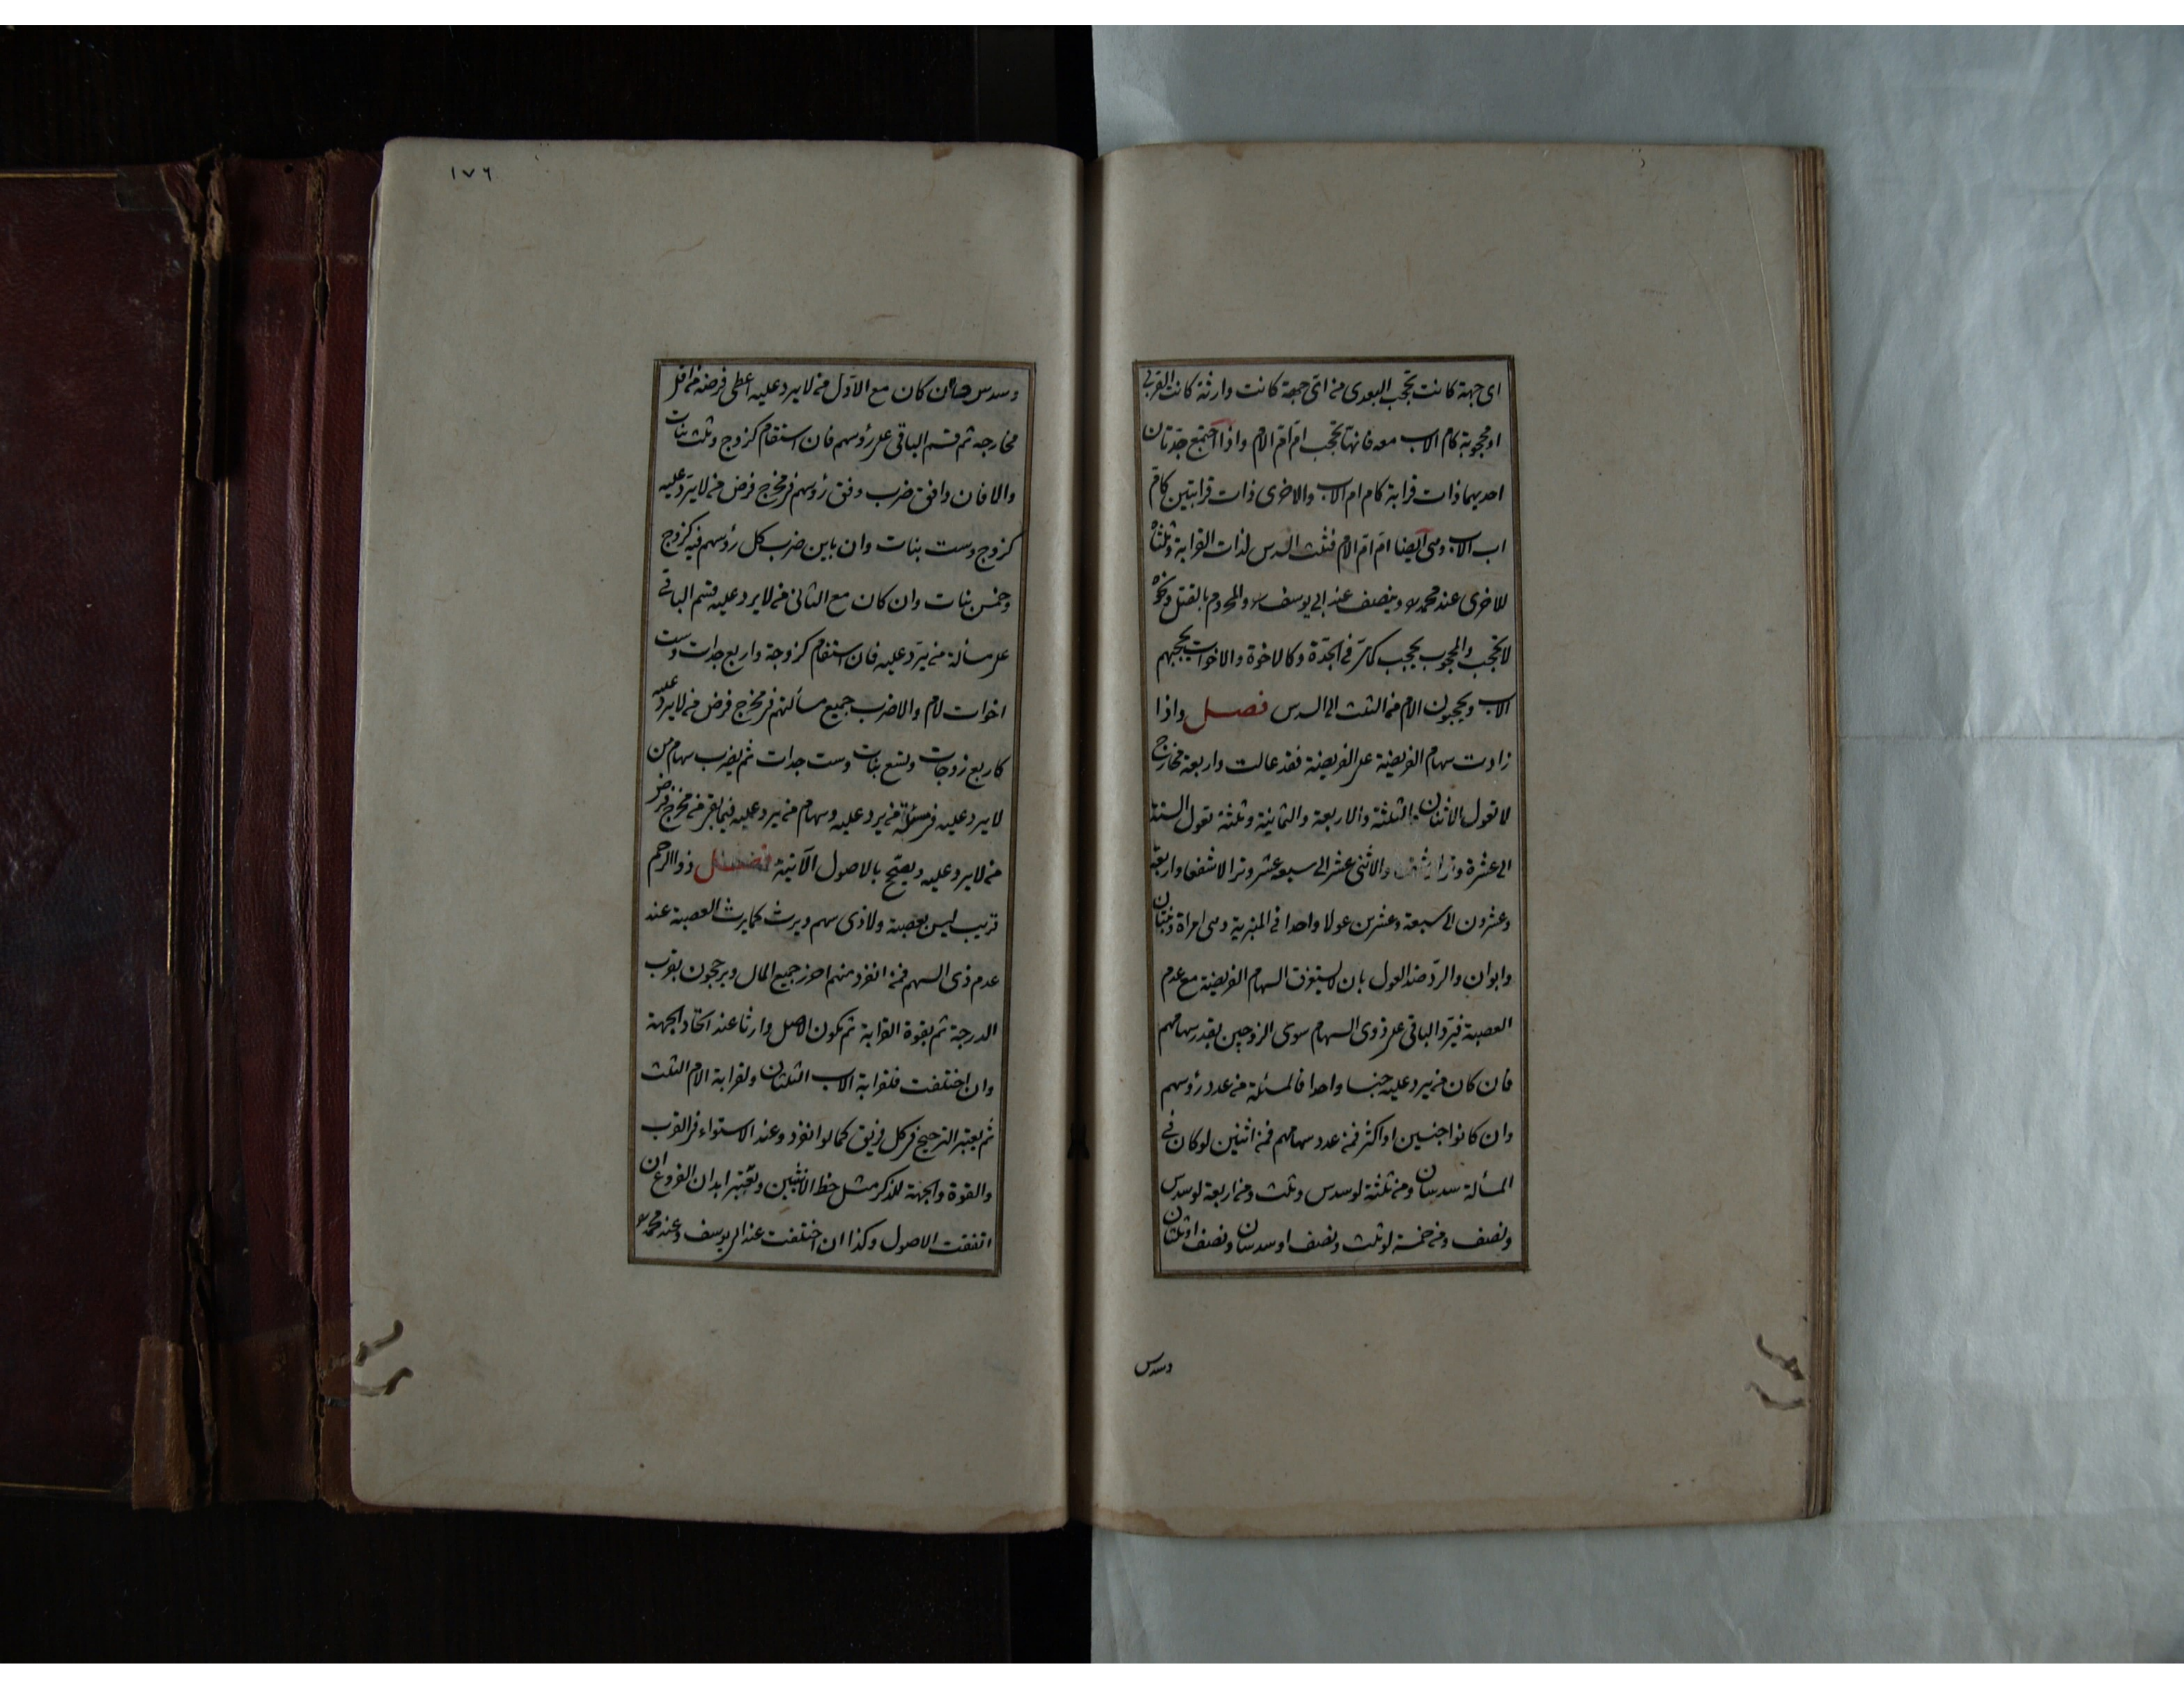 اى جهة كانت تحجب البعدى من اىّ جهة كانت وارثة كانت القربى
او محجوبة كام الاب معه فانها تحجب امّ امّ الام واذا اجتمع جدّتان
احديهما ذات قرابة كام ام الاب والاخرى ذات قرابتين كامّ
اب الاب وهى ايضا امّ امّ الام فثلث السدس لذات القرابة وثلثاه
للاخرى عند محمد وينصف عند ابى يوسف والمحروم بالقتل ونحوه
لا يحجب والمحجوب يحجب كما مرّ فى الجدّة وكالاخوة والاخوات يحجبهم
الاب ويحجبون الام من الثلث الى السدس فصل واذا
زادت سهام الفريضة على الفريضة فقد عالت واربعة مخارج
لا تعول الاثنان والثلثة والاربعة والثمانية وثلثة تعول الستة
الى عشرة وترا وشفعا والاثنى عشر الى سبعة عشر وترا لا شفعا واربعة
وعشرون الى سبعة وعشرين عولا واحدا فى المنبرية وهى امراة وبنتان
وابوان والردّ ضد العول بان لا يستغرق السهام الفريضة مع عدم
العصبة فيردّ الباقى على ذوى السهام سوى الزوجين بقدر سهامهم
فان كان من يرد عليه جنسا واحدا فالمسئلة من عدد رؤسهم
وان كانوا جنسين او اكثر فمن عدد سهامهم فمن اثنين لو كان فى
المسألة سدسان ومن ثلثة لو سدس وثلث ومن اربعة لو سدس
ونصف ومن خمسة لو ثلث ونصف او سدسان ونصف او ثلثان
وسدس
١٧٦
وسدس فان كان مع الاوّل من لا يرد عليه اعطى فرضه من اقل
مخارجه ثم قسم الباقى على رؤسهم فان استقام كزوج وثلث بنات
والا فان وافق ضرب وفق رؤسهم فى مخرج فرض من لا يردّ عليه
كزوج وست بنات وان باين ضرب كل رؤسهم فيه كزوج
وخمس بنات وان كان مع الثانى من لا يرد عليه قسم الباقى
على مسألة من يردّ عليه فان استقام كزوجة واربع جدات وست
اخوات لام والا ضرب جميع مسألتهم فى مخرج فرض من لا يرد عليه
كاربع زوجات وتسع بنات وست جدات ثم يضرب سهام من
لا يرد عليه فى مسئلة من يرد عليه وسهام من يرد عليه فيما بقى من مخرج فرض
من لا يرد عليه ويصحّ بالاصول الآتية فصل ذو الرحم
قريب ليس بعصبة ولا ذى سهم ويرث كما يرث العصبة عند
عدم ذى السهم فمن انفرد منهم احرز جميع المال ويرجحون بقرب
الدرجة ثم بقوة القرابة ثم بكون الاصل وارثا عند اتحاد الجهة
وان اختلفت فلقرابة الاب الثلثان ولقرابة الام الثلث
ثم يعتبر الترجيح فى كل فريق كما لو انفرد وعند الاستواء فى القرب
والقوة والجهة للذكر مثل حظ الانثيين ويعتبر ابدان الفروع ان
اتفقت الاصول وكذا ان اختلفت عند ابى يوسف وعند محمد